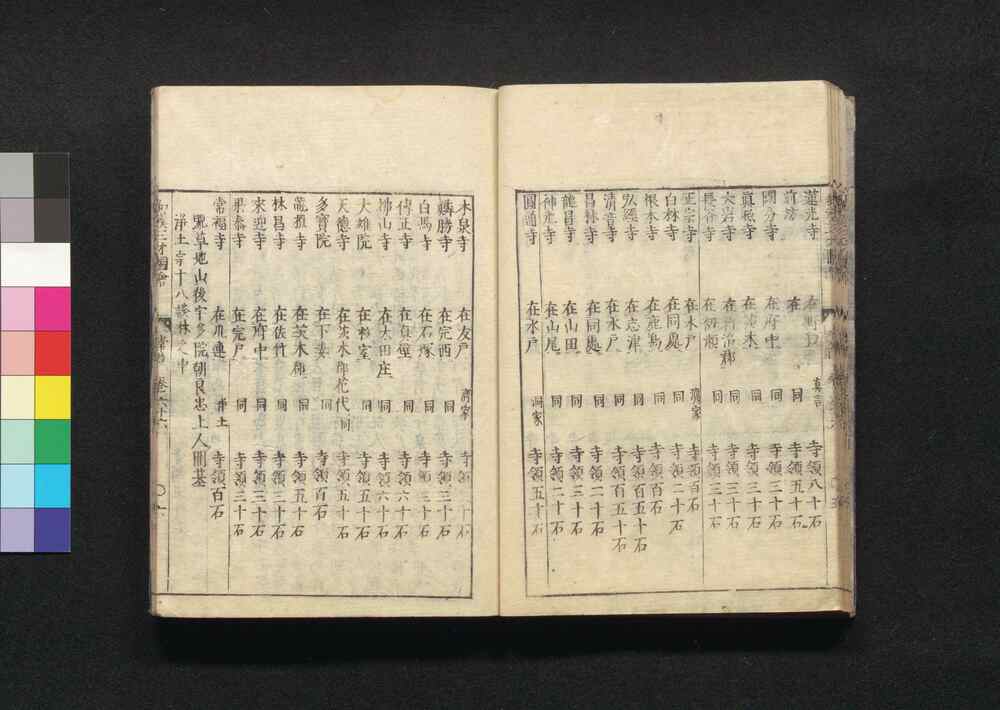 蓮光寺 在野口 真言 寺領八十石
在 同 寺領五十石
國分寺 在府中 同 寺領三十石
眞延寺 在茨木 同 寺領三十石
大岩寺 郡 同 寺領三十石
長谷寺 同 寺領三十石
正宗寺 在水戸 濟家 寺領百石
白林寺 在同處 同 寺領二十石
根本寺 在鹿島 同 寺領百石
在志津 同 寺領百五十石
清音寺 在水戸 同 寺領百五十石
昌林寺 在同處 同 寺領二十石
龍昌寺 在山田 同 寺領三十石
神光寺 在山尾 同 寺領二十石
圓通寺 在水戸 洞家 寺領五十石
本泉寺 在友戸 濟家 寺領 十石
麟勝寺 在完西 同 寺領三十石
白馬寺 在石塚 同 寺領三十石
傳正寺 在眞壁 同 寺領六十石
佛山寺 在太田庄 同 寺領六十石
大雄院 在 室 同 寺領五十石
天德寺 在茨木郡花代 同 寺領五十石
多寶院 在下妻 同 寺領百石
龍穏寺 在茨木郷 同 寺領五十石
林昌寺 在佐竹 同 寺領三十石
來迎寺 在府中 同 寺領三十石
東泰寺 在完戸 同 寺領三十石
常福寺 在瓜連 淨土 寺領百石
號草地山後宇多院朝了忠上人開基
淨土宗十八談林之中
和漢三才圖會 卷六十六 〇十